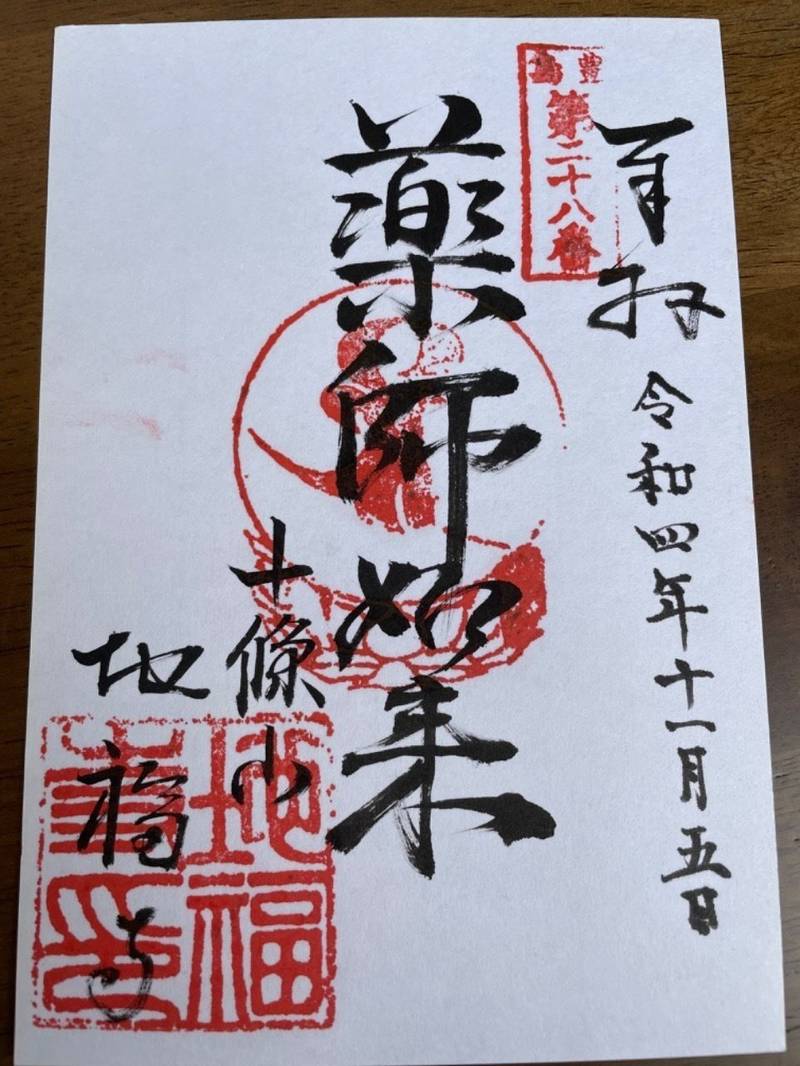 奉拝 令和四年十一月五日
豊島
第二十八番
薬師如来
十條山
地福寺
地福寺印